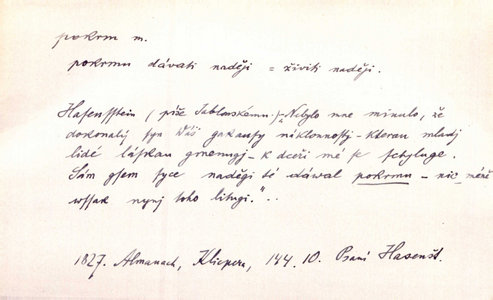 pokrm m.
pokrmu dávati naději = živiti naději.
Hasensstein (píše Jablonskému:) "Nebylo mne minulo, že
dokonalý syn Wáš gakausy náklonnosti - kterau mladj
lidé láskau gmenugj - k dceři mé se schyluge.
Sám gsem syce naděgi té dáwal pokrmu - nic méně
wssak nynj toho litugi." . .
1827. Almanach, Klicpera, 144. 10. Psaní Hasenšt.